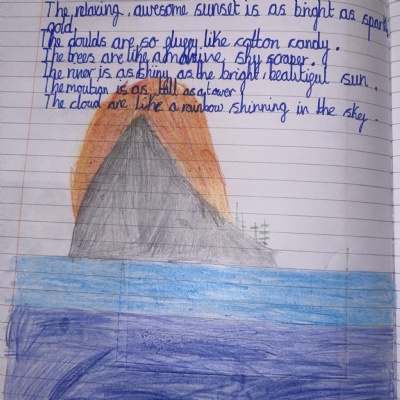 The relaxing, awesome sunset is as bright as spark
gold.
The coulds are so fluffy like cotton candy.
The trees are like a massive, sky scaper.
The river is as shiny as the bright, beautiful sun.
The moution is as tall as a tower
The cloud are like a rainbow shinning in the sky.